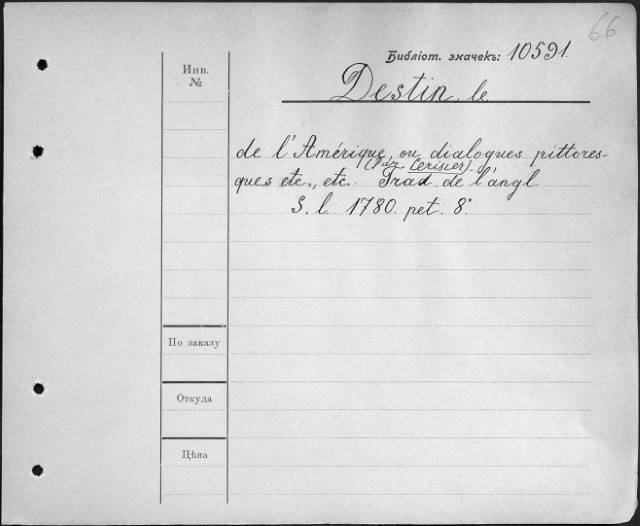 66
Библіот. значекъ: 10591.
Инв.
№
Destin, le
de l'Amérique, ou dialogues pittores-
(par Cerisier).
ques etc., etc. Trad. de l'angl
S. l. 1780. pet. 8°
По заказу
Откуда
Цѣна